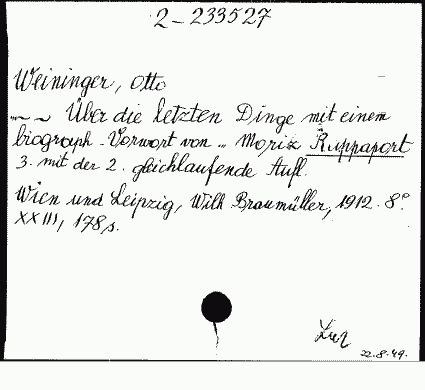 2-233527
Weininger, Otto
~ ~ Über die letzten Dinge mit einem
biograph. Vorwort von .. Moriz Rappaport
3. mit der 2. gleichlaufende Aufl.
Wien und Leipzig, Wilh Braumüller, 1912. 8°.
XXIII, 178 s.
22.8.49.